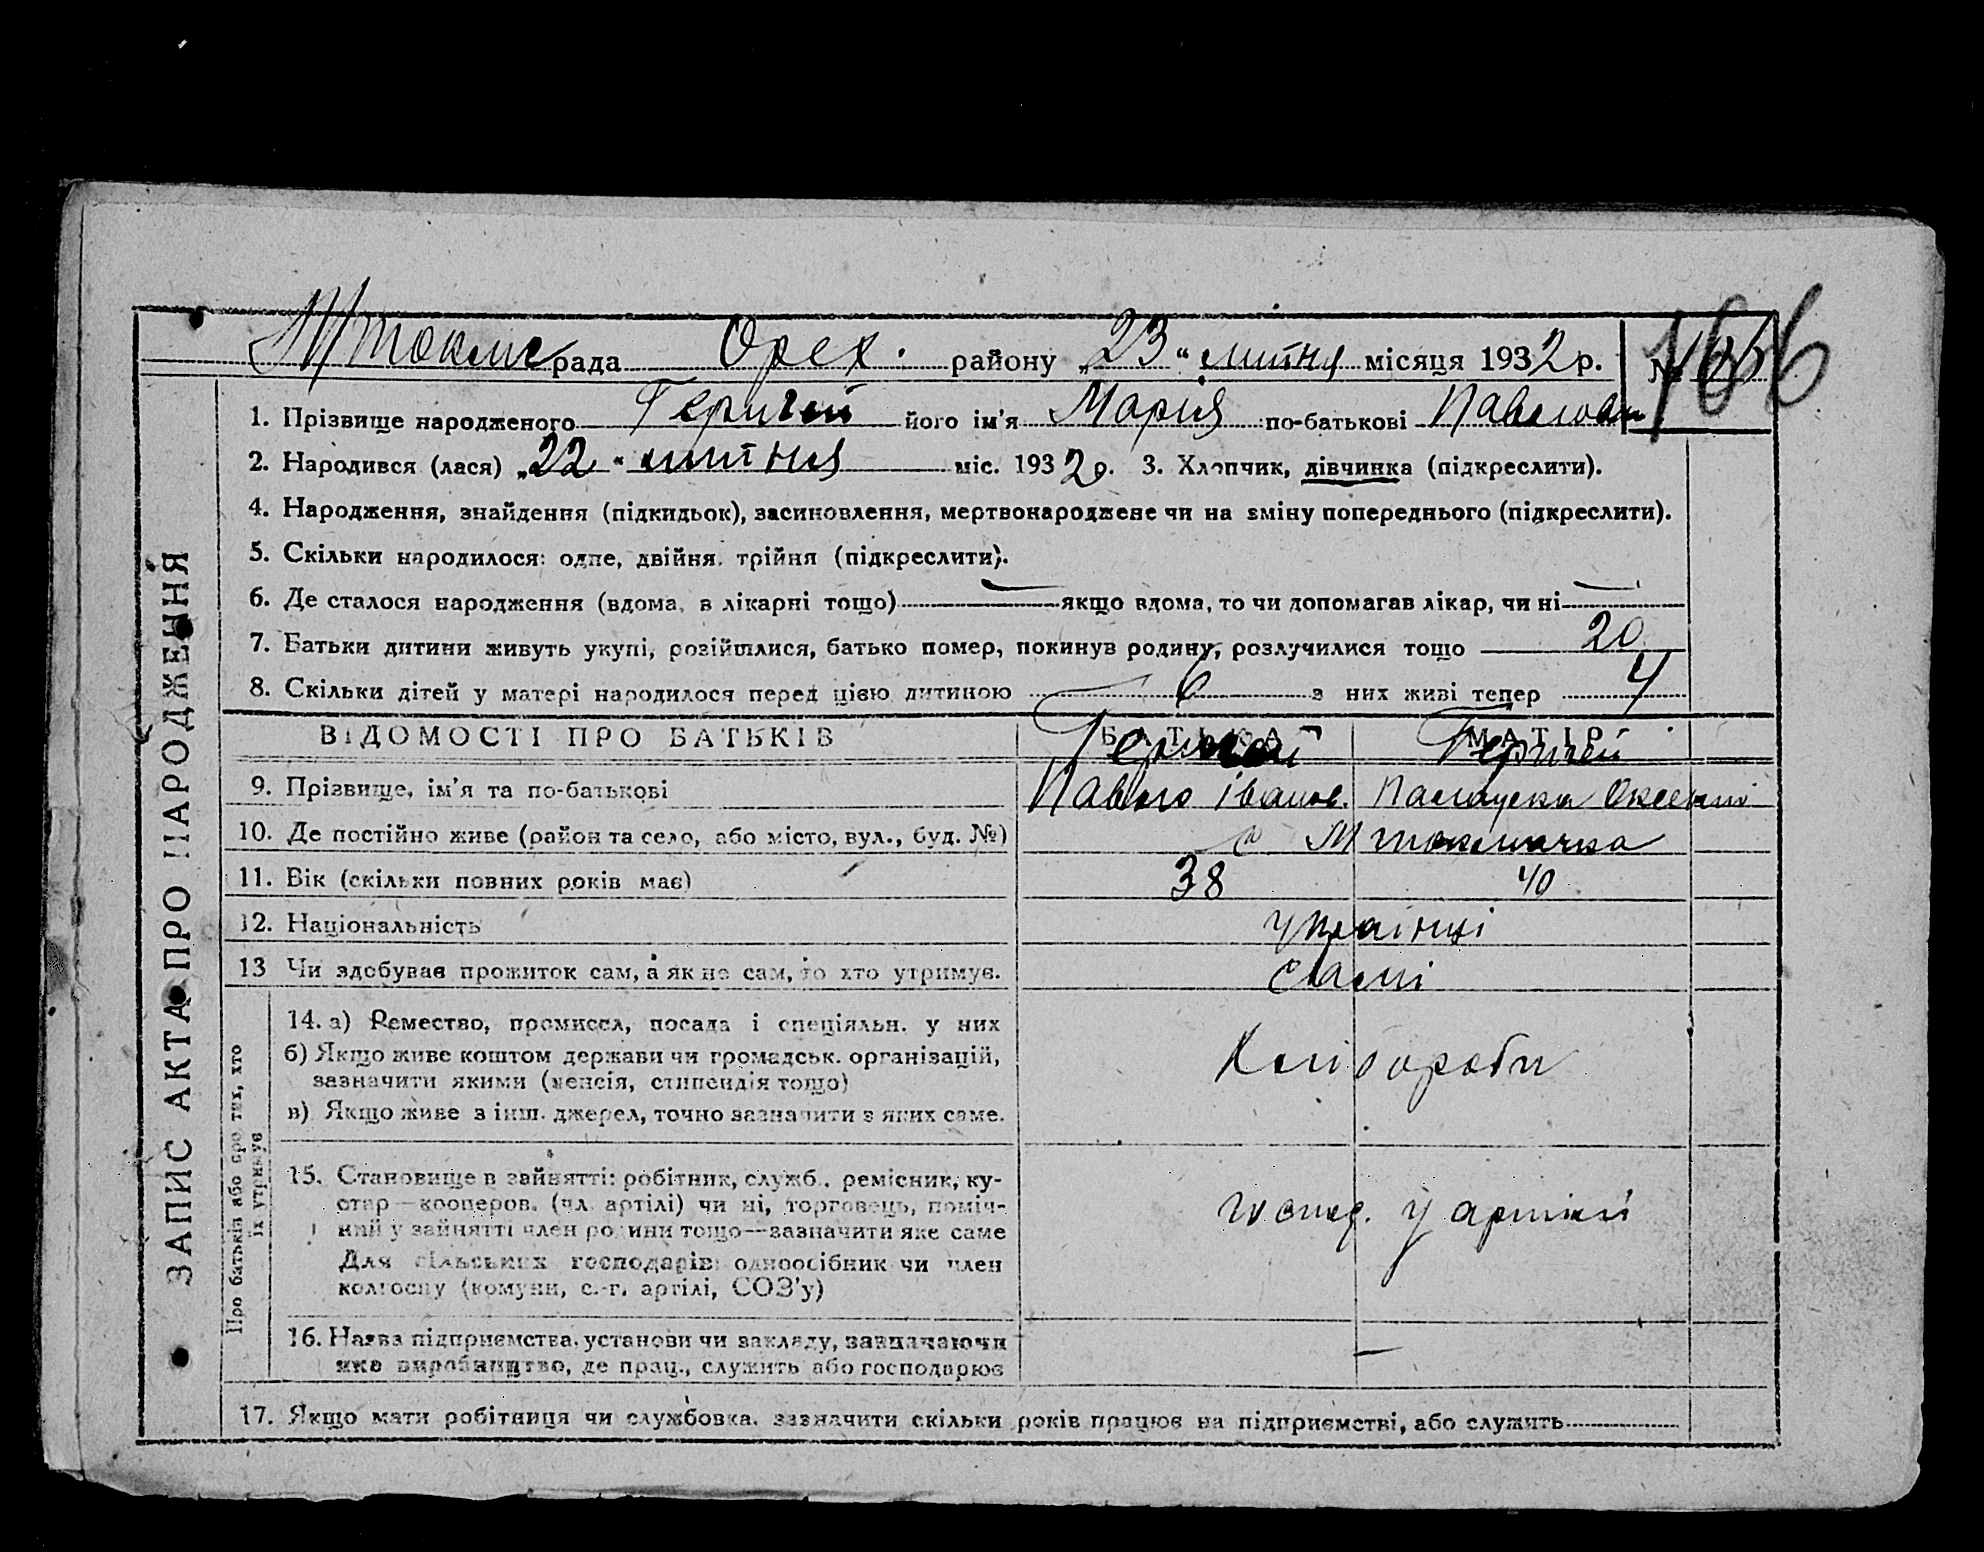 МТокмс рада Орех. району „23“ липня місяця 1932 р. № 166
1. Прізвище народженого Геричей його ім'я Мария по-батькові Павловн
2. Народився (лася) „22“ липня міс. 1932 р. 3. Хлопчик, дівчинка (підкреслити).
4. Народження, знайдення (підкидьок), засиновлення, мертвонароджене чи на зміну попереднього (підкреслити).
5. Скільки народилося: одне, двійня, трійня (підкреслити).
6. Де сталося народження (вдома, в лікарні тощо) — якщо вдома, то чи допомагав лікар, чи ні —
7. Батьки дитини живуть укупі, розійшлися, батько помер, покинув родину, розлучилися тощо 20
8. Скільки дітей у матері народилося перед цією дитиною 6 з них живі тепер 4
ЗАПИС АКТА ПРО НАРОДЖЕННЯ
ВІДОМОСТІ ПРО БАТЬКІВ БАТЬКА МАТІР
Геричей Геричей
9. Прізвище, ім'я та по-батькові Павло Іванов.
10. Де постійно живе (район та село, або місто, вул., буд. №) с МТокмачка
11. Вік (скільки повних років має) 38 40
12. Національність українці
13 Чи здобуває прожиток сам, а як не сам, то хто утримує. Самі
Про батьків або про тих, хто їх утримує
14. а) Ремество, промисел, посада і спеціяльн. у них
б) Якщо живе коштом держави чи громадськ. організацій,
зазначити якими (пенсія, стипендія тощо)
Хлібороби
в) Якщо живе з інш. джерел, точно зазначити з яких саме.
15. Становище в зайнятті: робітник, служб., ремісник, ку-
стар—кооперов. (чл. артілі) чи ні, торговець, поміч-
ний у зайнятті член родини тощо—зазначити яке саме
господ. у артілі
Для сільських господарів: одноосібник чи член
колгоспу (комуни, с.-г. артілі, СОЗ'у)
16. Назва підприємства, установи чи закладу, зазначаючи
яке виробництво, де прац., служить або господарює —
17. Якщо мати робітниця чи службовка, зазначити скільки років працює на підприємстві, або служить